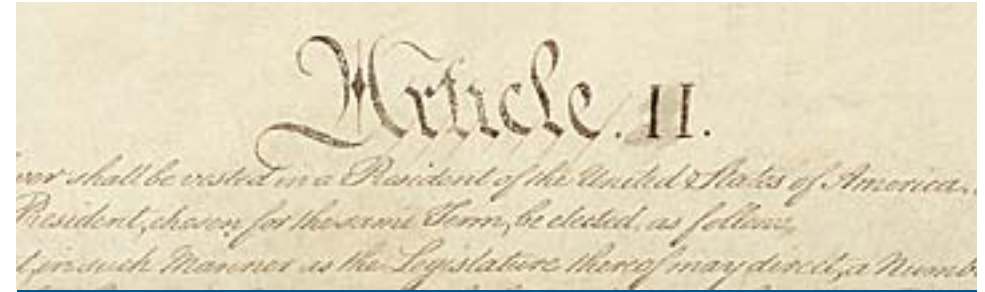 Article. II.
wer shall be vested in a President of the United States of America.
President, chosen for the same Term, be elected, as follows
in such Manner as the Legislature thereof may direct, a Numb